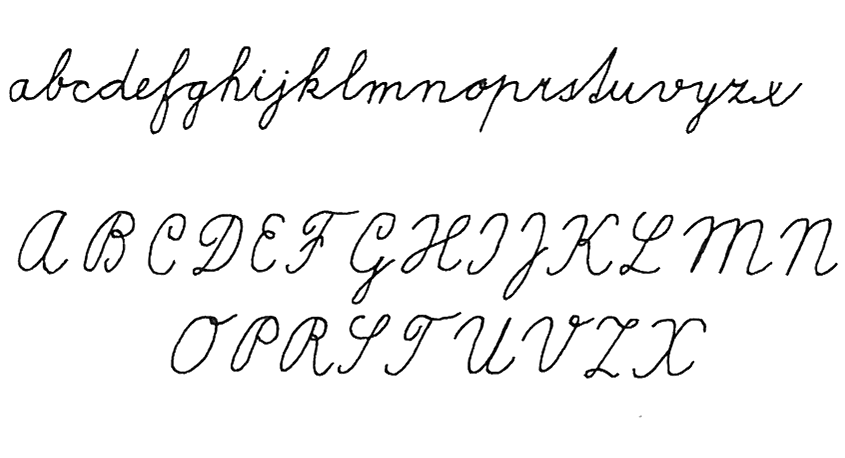 abcdefghijklmnoprstuvyzx
A B C D E F G H I J K L M N
O P R S T U V Z X